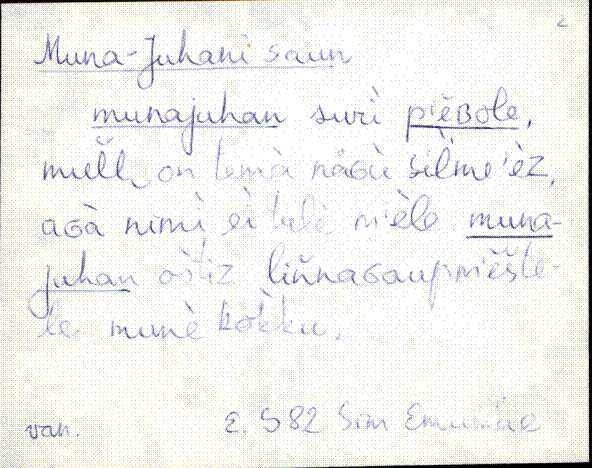 2
Muna-Juhani saun
munajuhan suri̇̀ pi̮ĕʙole,
mull on temà nǎɢù silme'èz,
aɢà nimì ei tulè mìele muna-
juhan ostiz linnaɢaupmĕšte-
le munè kokku.
van. E. S 82 Sim